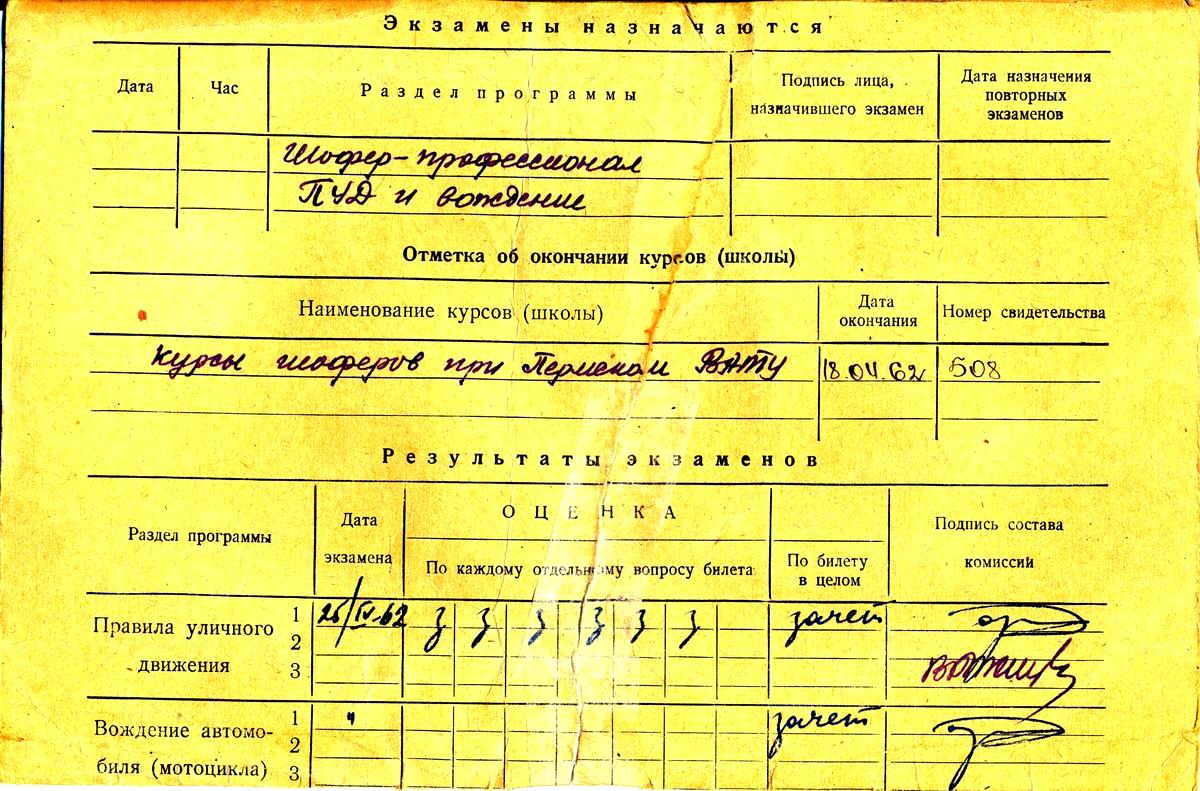 Экзамены назначаются
Дата Час Раздел программы Подпись лица, назначившего экзамен Дата назначения повторных экзаменов
Шофер-профессионал
ПУД и вождение
Отметка об окончании курсов (школы)
Наименование курсов (школы) Дата окончания Номер свидетельства
Курсы шоферов при Пермском ВАТУ 18.04.62 508
Результаты экзаменов
Раздел программы Дата экзамена ОЦЕНКА Подпись состава комиссий
По каждому отдельному вопросу билета По билету в целом
Правила уличного движения 1 25/IV-62 з з з з з з зачет
2
3
Вождение автомобиля (мотоцикла) 1 " зачет
2
3